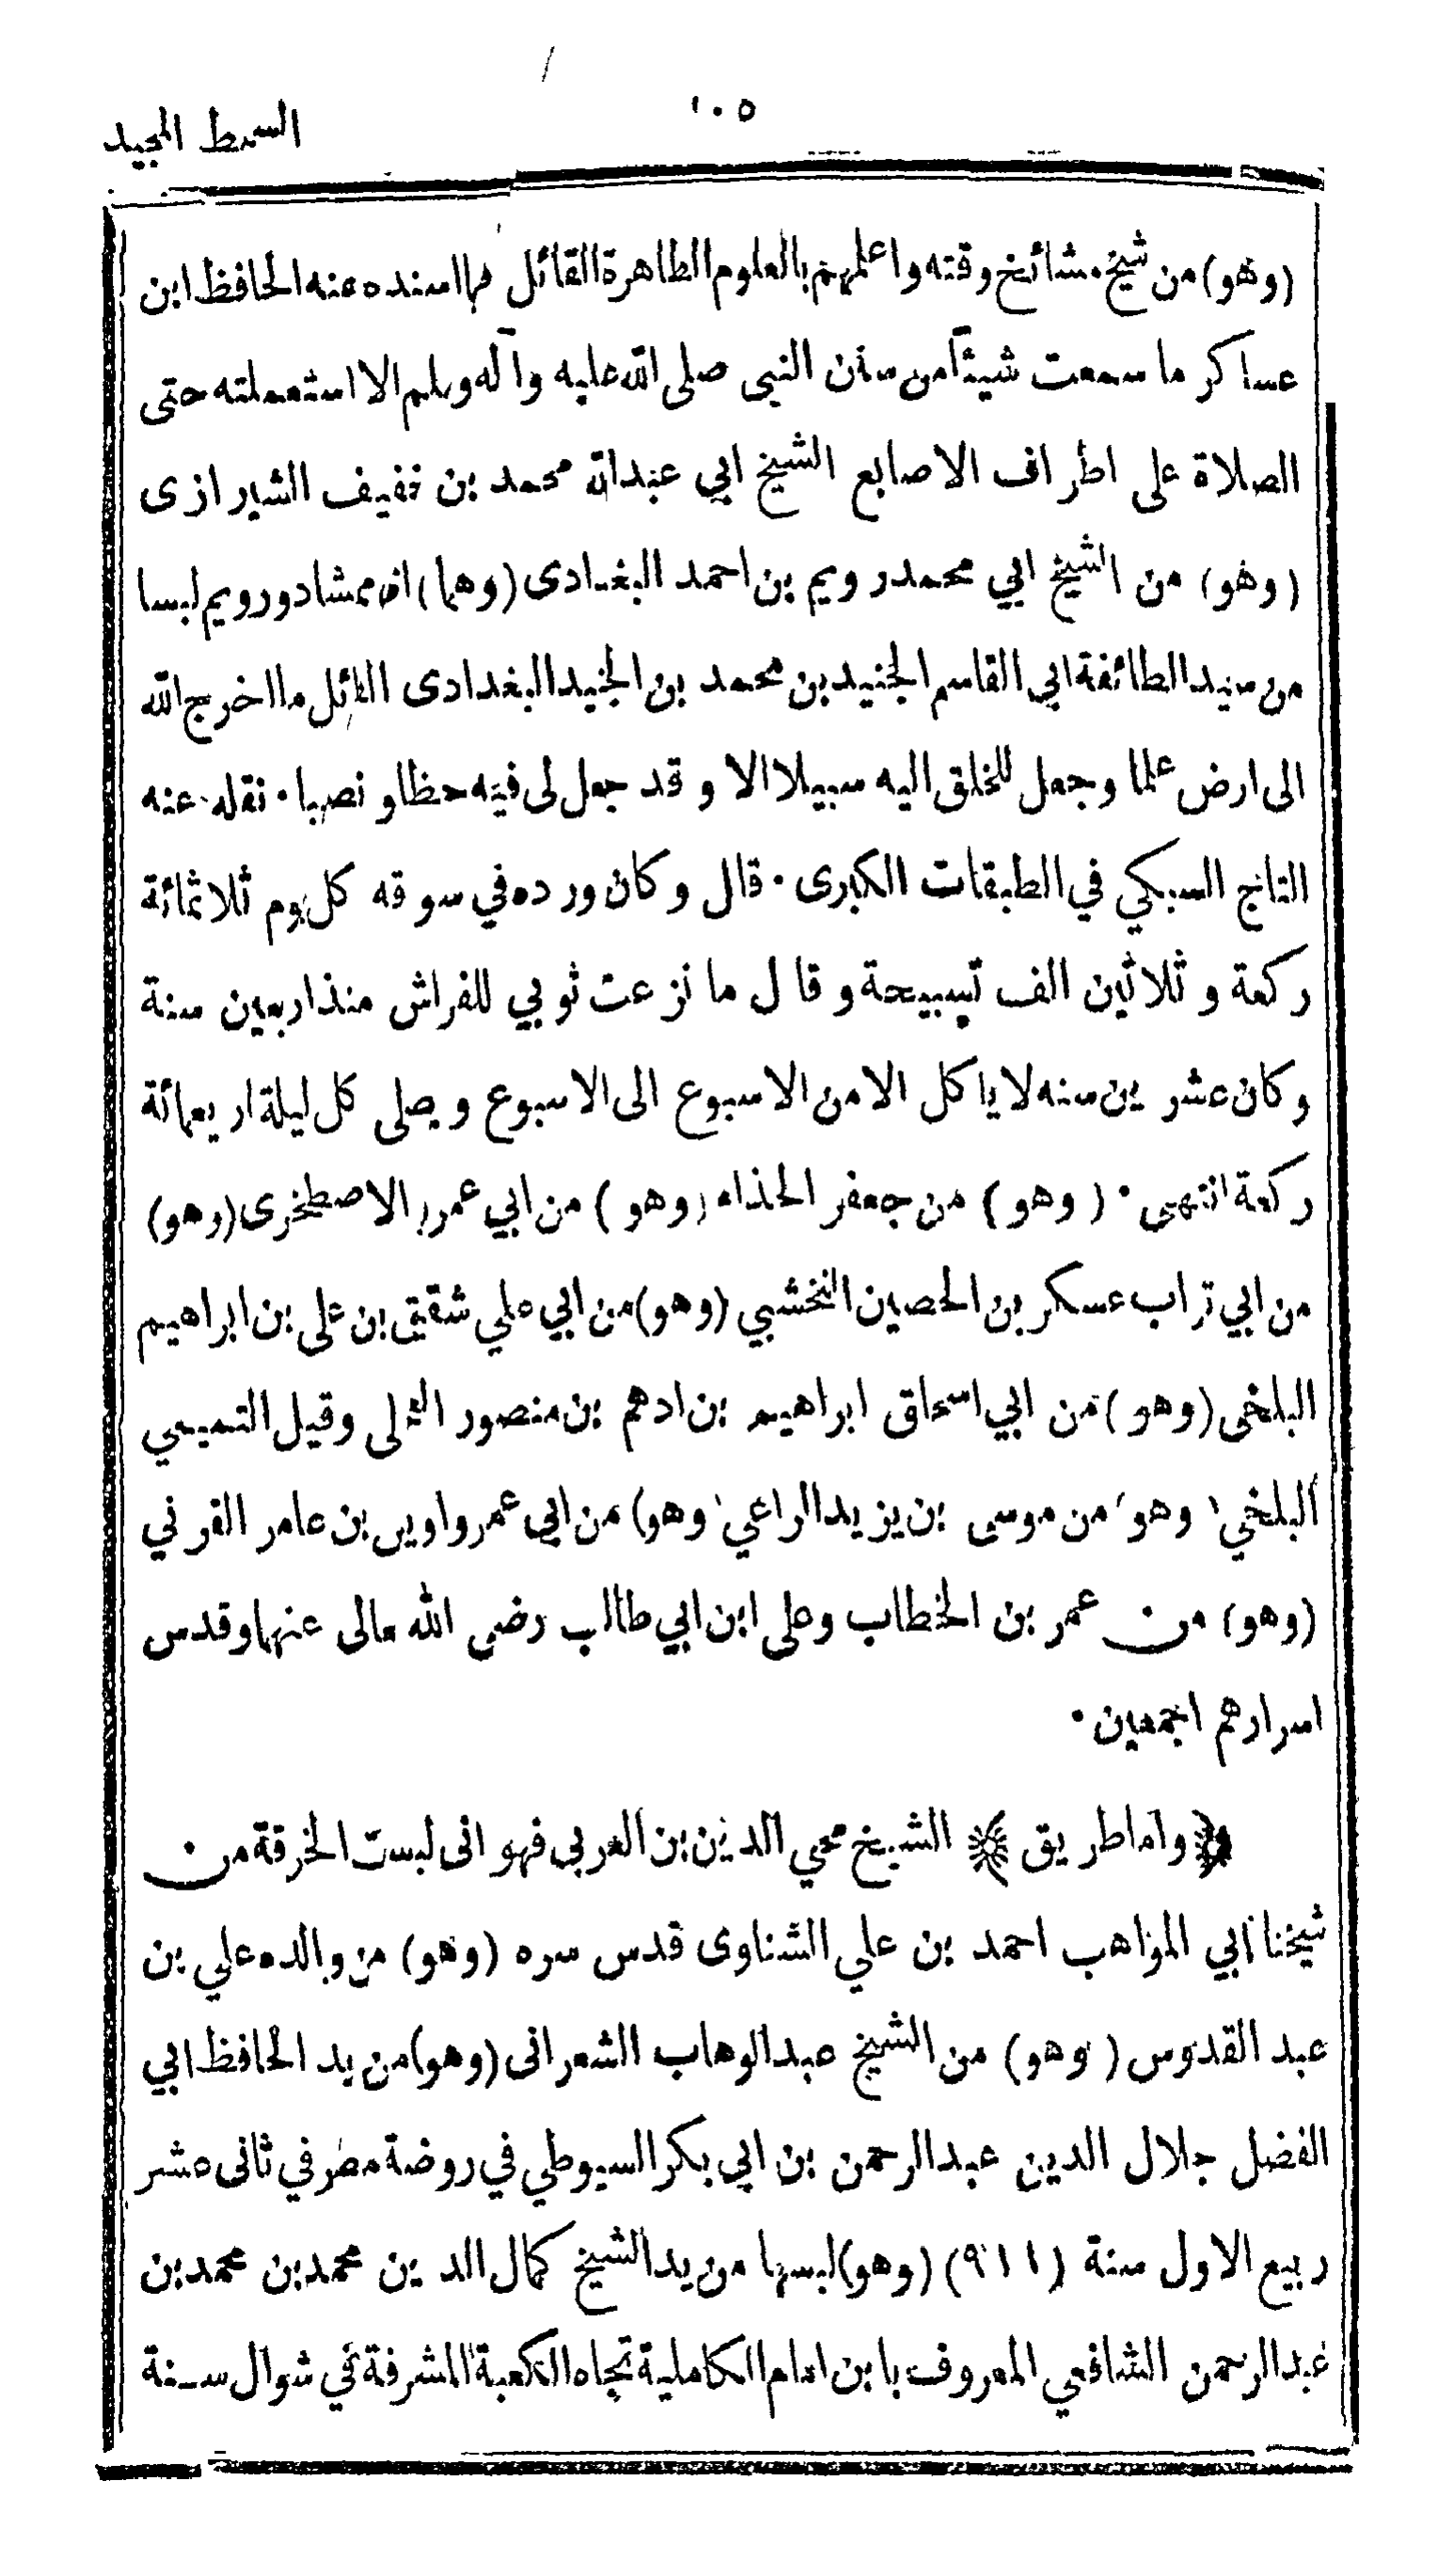 ١٠٥
السمط المجيد
(وهو) من شيخ مشائخ وقته واعلمهم بالعلوم الظاهرة القائل فيما اسنده عنه الحافظ ابن
عساكر ما سمعت شيئاً من سنن النبى صلى الله عليه وآله وسلم الا استعملته حتى
الصلاة على اطراف الاصابع الشيخ ابي عبدالله محمد بن خفيف الشيرازى
(وهو) من الشيخ ابي محمد رويم بن احمد البغدادى (وهما) اى ممشاد ورويم لبسا
من سيد الطائفة ابي القاسم الجنيد بن محمد بن الجنيد البغدادى القائل ما اخرج الله
الى ارض علما وجعل للخلق اليه سبيلا الا وقد جعل لى فيه حظا و نصيبا٠ نقله عنه
التاج السبكي في الطبقات الكبرى٠ قال وكان ورده في سوقه كل يوم ثلاثمائة
ركعة و ثلاثين الف تسبيحة و قال ما نزعت ثوبي للفراش منذ اربعين سنة
وكان عشرين سنه لا ياكل الا من الاسبوع الى الاسبوع ويصلى كل ليلة اربعمائة
ركعة انتهى٠ (وهو) من جعفر الحذاء (وهو) من ابي عمرو الاصطخرى (وهو)
من ابي تراب عسكر بن الحصين النخشبي (وهو) من ابي علي شقيق بن على بن ابراهيم
البلخى (وهو) من ابي اسحاق ابراهيم بن ادهم بن منصور وقيل التميمي
البلخي (وهو) من موسى بن يزيد الراعي (وهو) من ابي عمرو اويس بن عامر القرني
(وهو) من عمر بن الخطاب وعلى ابن ابي طالب رضى الله تعالى عنهما وقدس
اسرارهم اجمعين٠
﴿واما طريق﴾ الشيخ محي الدين بن العربي فهو انى لبست الخرقة من
شيخنا ابي المواهب احمد بن علي الشناوى قدس سره (وهو) من والده علي بن
عبد القدوس (وهو) من الشيخ عبدالوهاب الشعرانى (وهو) من يد الحافظ ابي
الفضل جلال الدين عبدالرحمن بن ابي بكر السيوطي في روضة مصر في ثانى عشر
ربيع الاول سنة (٩١١) (وهو) لبسها من يد الشيخ كمال الدين محمد بن محمد بن
عبدالرحمن الشافعي المعروف بابن امام الكاملية تجاه الكعبة المشرفة في شوال سنة